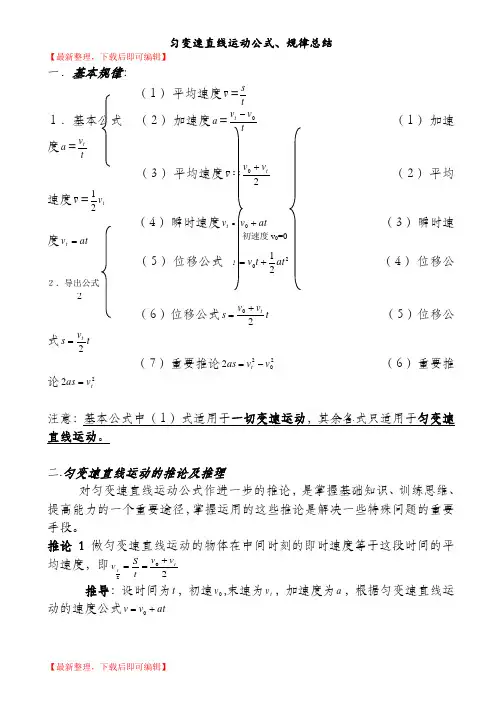 匀变速直线运动公式、规律总结
【最新整理，下载后即可编辑】
一．基本规律：
（1）平均速度v＝s/t
1．基本公式 （2）加速度a＝(v_t－v_0)/t （1）加速
度a＝v_t/t
（3）平均速度v＝(v_0＋v_t)/2 （2）平均
速度v＝1/2 v_t
（4）瞬时速度v_t＝v_0＋at （3）瞬时速
度v_t＝at
初速度v_0=0
（5）位移公式 ＝v_0t＋1/2 at² （4）位移公
2．导出公式
2
（6）位移公式s＝(v_0＋v_t)/2 t （5）位移公
式s＝v_t/2 t
（7）重要推论2as＝v_t²－v_0² （6）重要推
论2as＝v_t²
注意：基本公式中（1）式适用于一切变速运动，其余各式只适用于匀变速
直线运动。
二.匀变速直线运动的推论及推理
对匀变速直线运动公式作进一步的推论，是掌握基础知识、训练思维、
提高能力的一个重要途径，掌握运用的这些推论是解决一些特殊问题的重要
手段。
推论1 做匀变速直线运动的物体在中间时刻的即时速度等于这段时间的平
均速度，即v_{t/2}＝S/t＝(v_0＋v_t)/2
推导：设时间为t，初速v_0,末速为v_t，加速度为a，根据匀变速直线运
动的速度公式v＝v_0＋at
【最新整理，下载后即可编辑】